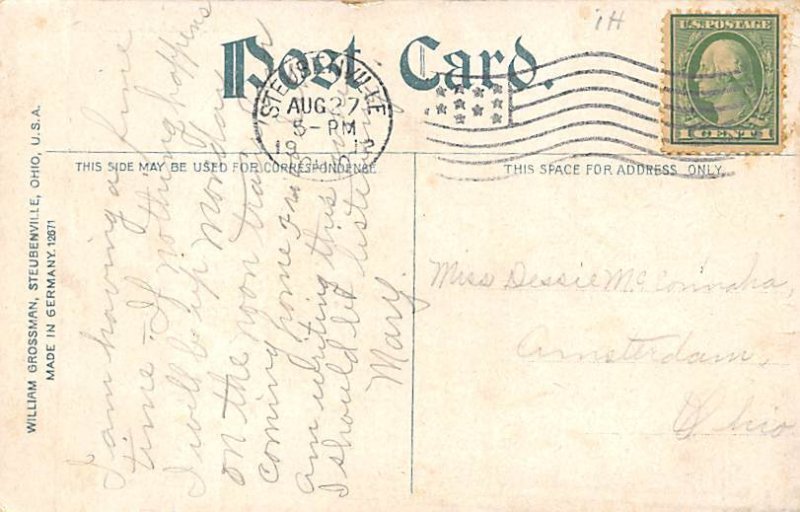 1H
Post Card.
U.S. POSTAGE
1 CENT 1
STEUBENVILLE
AUG 27
5-PM
1913
OHIO
THIS SIDE MAY BE USED FOR CORRESPONDENCE
THIS SPACE FOR ADDRESS ONLY.
WILLIAM GROSSMAN, STEUBENVILLE, OHIO, U.S.A.
MADE IN GERMANY. 12671
I am having a fine
time. If nothing happens
I will be up Monday
on the noon train
coming home
am writing this
I should let
Mary.
Miss Dessie McConnaha,
Amsterdam,
Ohio